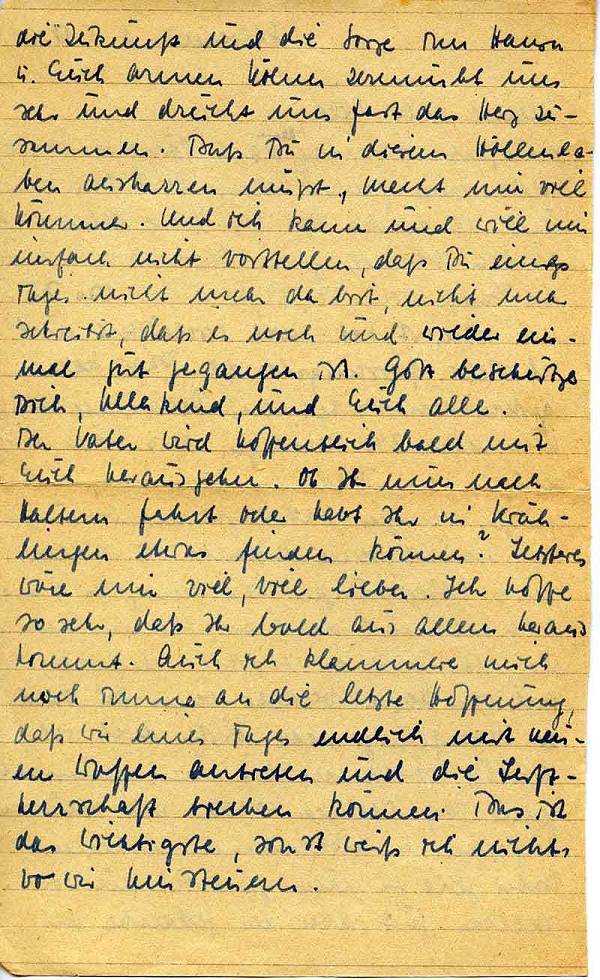 die Zukunft und die Sorge um Hansa
u. Euch armen Kölner zermürbt uns
sehr und drückt uns fast das Herz zu-
sammen. Daß Du in diesem Höllenle-
ben ausharren mußt, macht mir viel
Kummer. Und ich kann und will mir
einfach nicht vorstellen, daß Du eines
Tages nicht mehr da bist, nicht mehr
schreibst, daß es noch und wieder ein-
mal gut gegangen ist. Gott beschütze
Dich, Ullakind, und Euch alle.
Der Vater wird hoffentlich bald mit
Euch herausgehen. Ob Ihr nun nach
Haltern fahrt oder habt Ihr in
etwas finden können? Letzteres
wäre mir viel, viel lieber. Ich hoffe
so sehr, daß Ihr bald aus allem heraus
kommt. Auch ich klammere mich
noch immer an die letzte Hoffnung,
daß wir eines Tages endlich mit neu-
en Waffen antreten und die Luft-
herrschaft brechen können. Das ist
das Wichtigste, sonst weiß ich nicht,
wo wir hinsteuern.